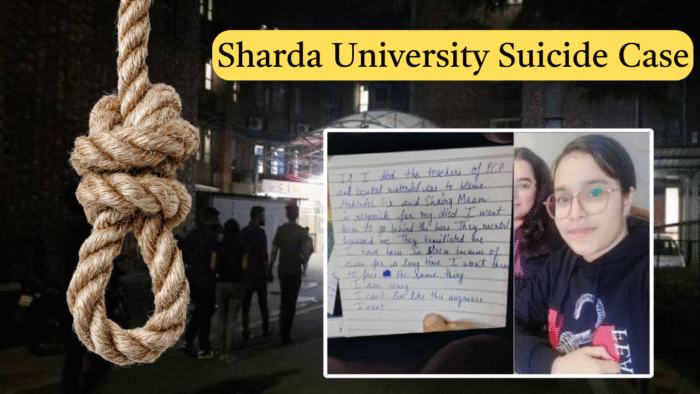 Sharda University Suicide Case
If I died the teachers of PCP
and Dental material are to blame
Sir and Maam
is for my died I want
them to go behind the bars They mental
me They humiliated me
I have been in stress because of
them for a long time I want them
to face the same thing
I am sorry
I can't live like this anymore
I can't